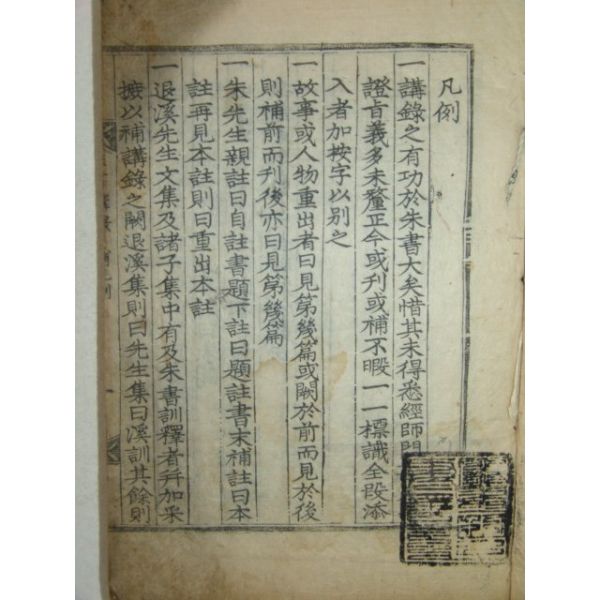 凡例
一講錄之有功於朱書大矣惜其未得悉經師門
證旨義多未釐正今或刋或補不暇一一標識全段添
入者加按字以別之
一故事或人物重出者曰見第幾篇或闕於前而見於後
則補前而刋後亦曰見第幾篇
一朱先生親註曰自註書題下註曰題註書末補註曰本
註再見本註則曰重出本註
一退溪先生文集及諸子集中有及朱書訓釋者并加采
摭以補講錄之闕退溪集則曰先生集曰溪訓其餘則